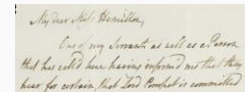 My dear Miss Hamilton,
One of my Servants as well as a Person
that has called here having informed me that they
hear for certain, that Lord is committed